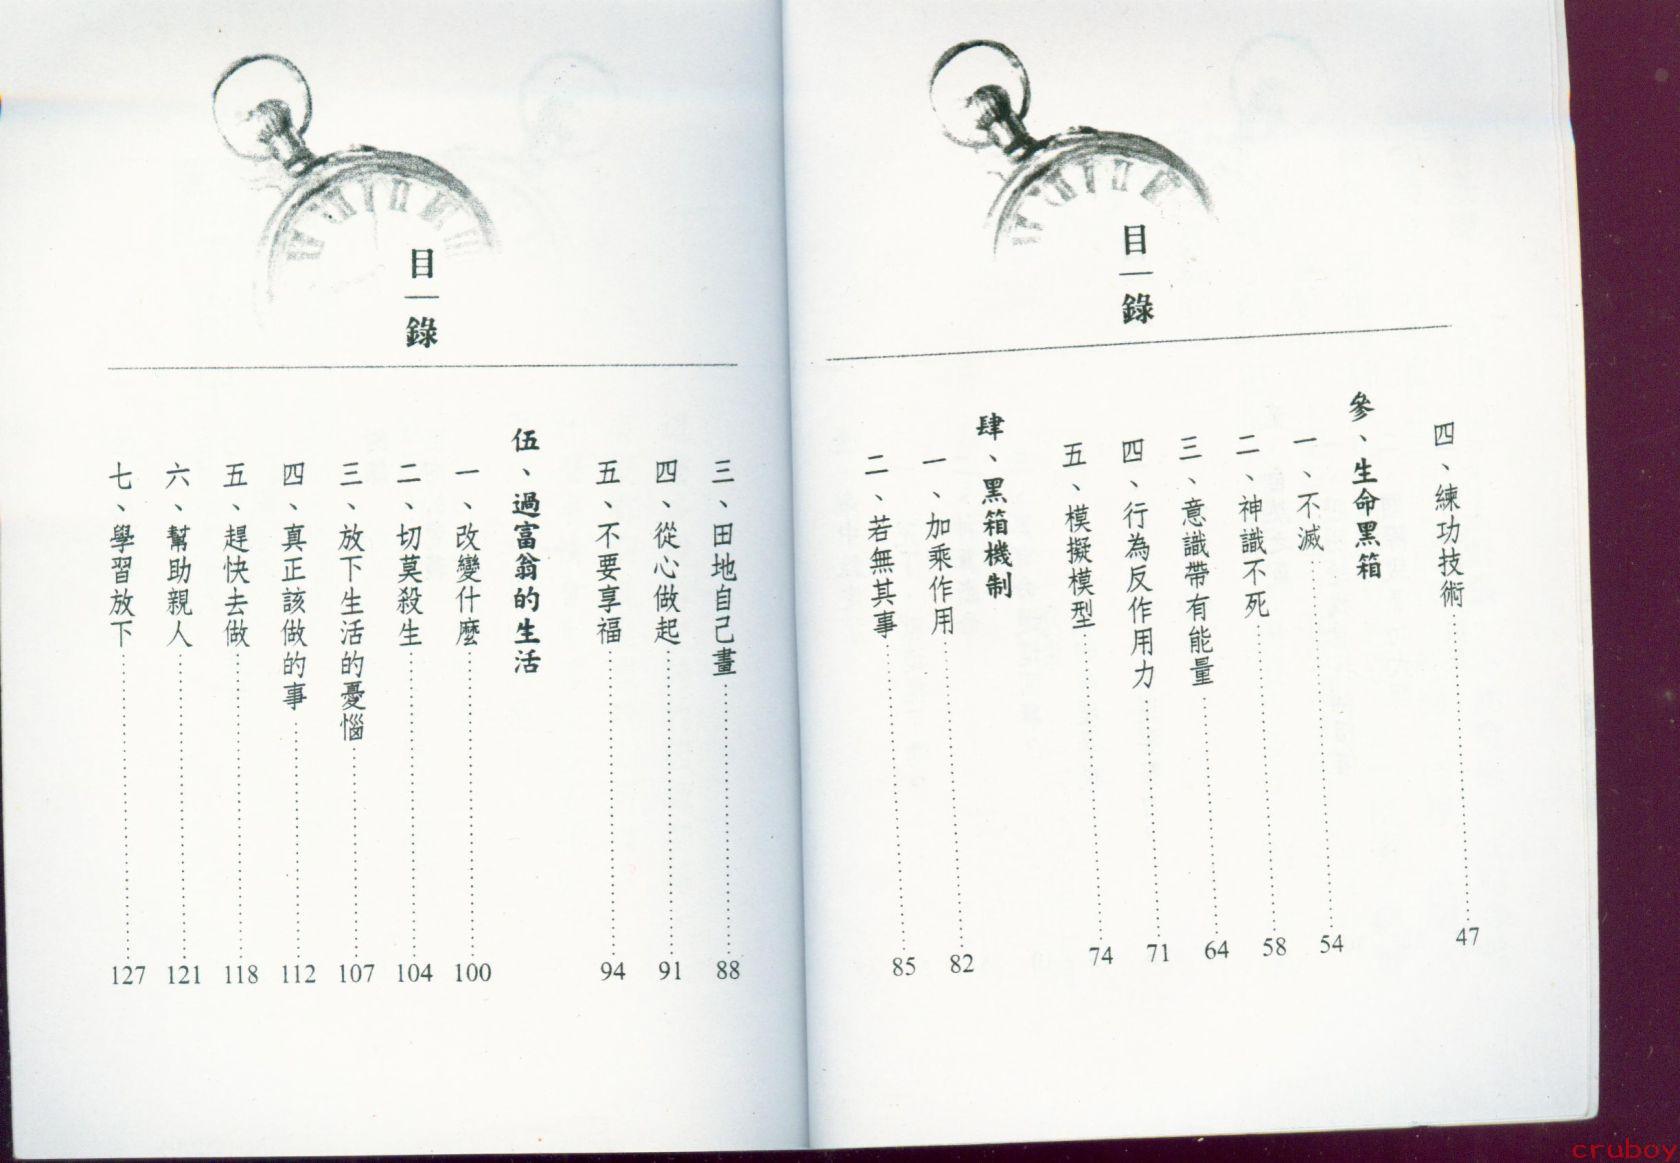 目錄
四、練功技術 47
參、生命黑箱
一、不滅 54
二、神識不死 58
三、意識帶有能量 64
四、行為反作用力 71
五、模擬模型 74
肆、黑箱機制
一、加乘作用 82
二、若無其事 85
目錄
三、田地自己畫 88
四、從心做起 91
五、不要享福 94
伍、過富翁的生活
一、改變什麼 100
二、切莫殺生 104
三、放下生活的憂惱 107
四、真正該做的事 112
五、趕快去做 118
六、幫助親人 121
七、學習放下 127
cruboy